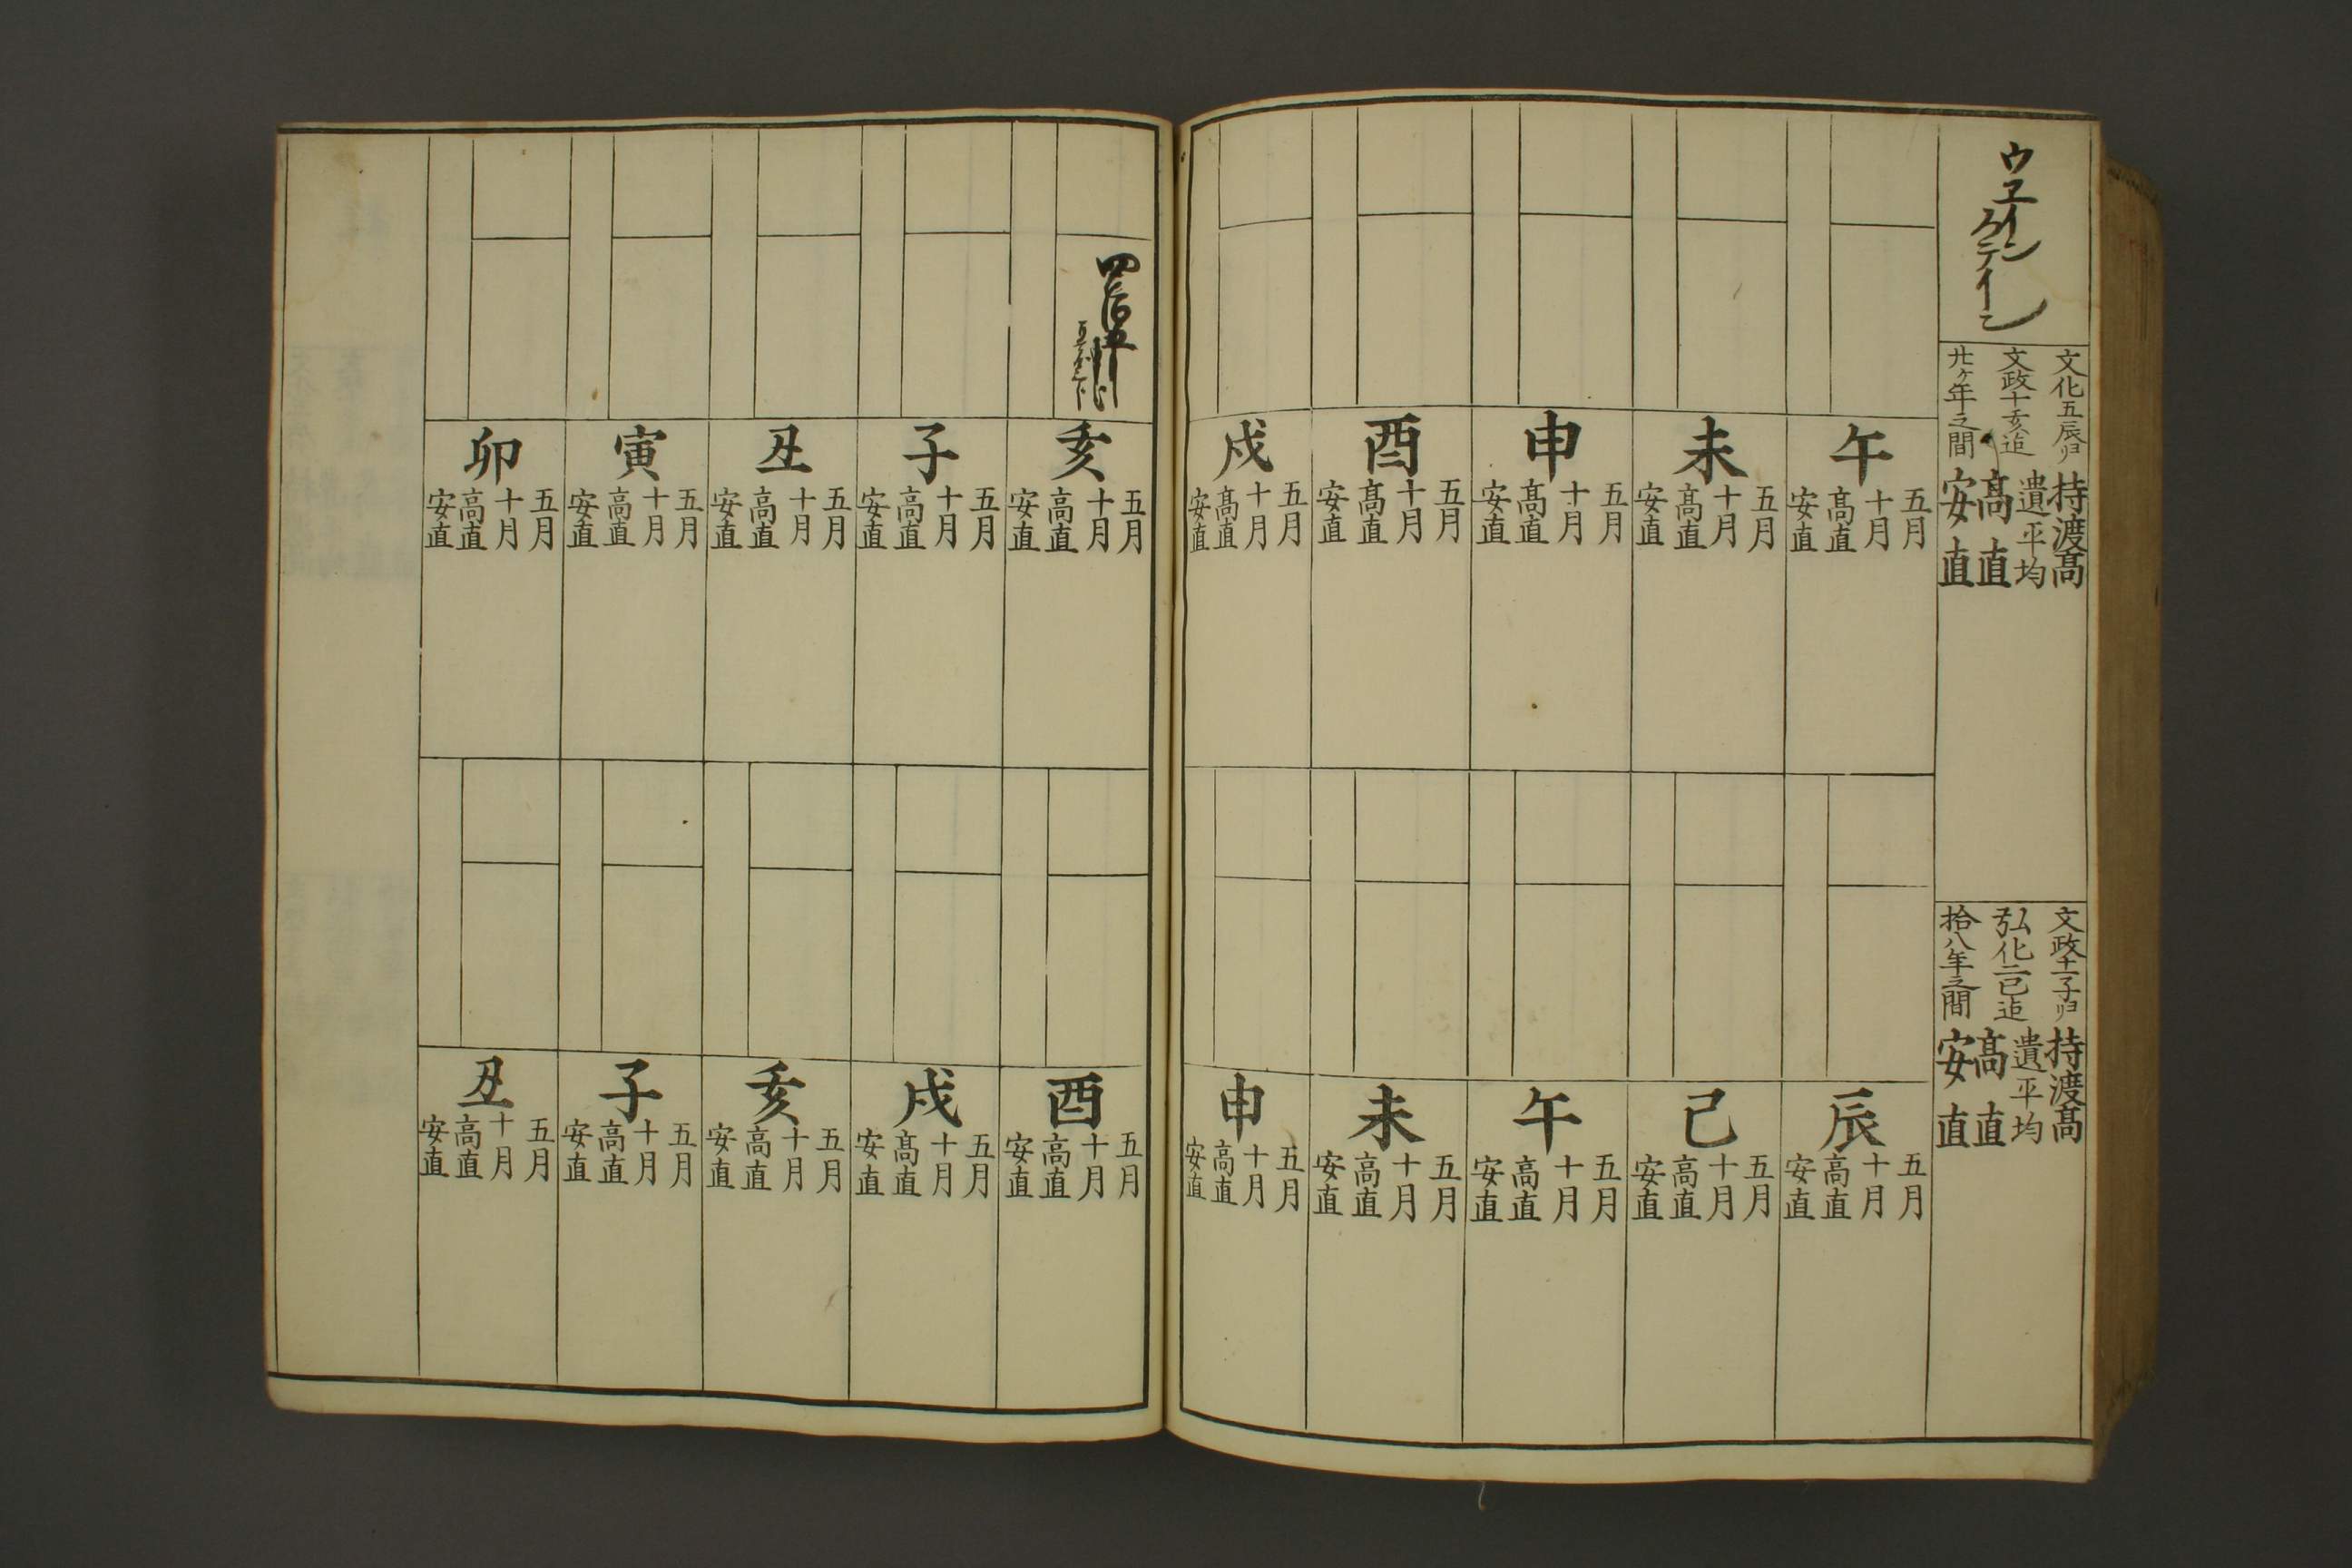 ウエイン
クテイーン
文化五辰ヨリ
文政十亥迠
廿ヶ年之間
持渡高
遣平均
高直
安直
文政十一子ヨリ
弘化二巳迠
拾八年之間
持渡高
遣平均
高直
安直
午
五月
十月
高直
安直
未
五月
十月
高直
安直
申
五月
十月
高直
安直
酉
五月
十月
高直
安直
戌
五月
十月
高直
安直
辰
五月
十月
高直
安直
己
五月
十月
高直
安直
午
五月
十月
高直
安直
未
五月
十月
高直
安直
申
五月
十月
高直
安直
亥
五月
十月
高直
安直
子
五月
十月
高直
安直
丑
五月
十月
高直
安直
寅
五月
十月
高直
安直
卯
五月
十月
高直
安直
酉
五月
十月
高直
安直
戌
五月
十月
高直
安直
亥
五月
十月
高直
安直
子
五月
十月
高直
安直
丑
五月
十月
高直
安直